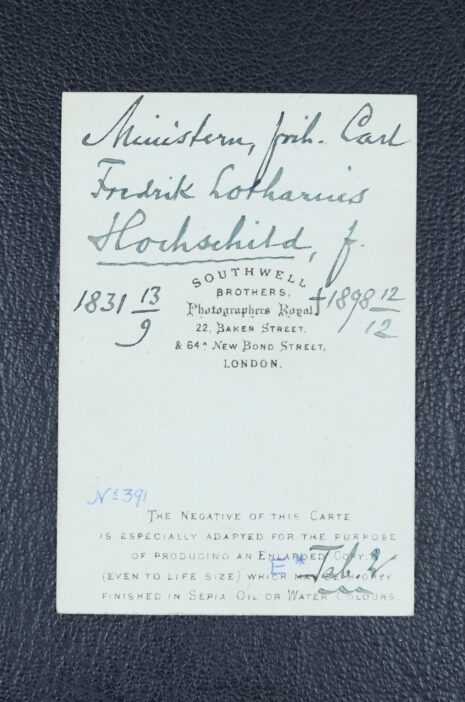 Ministern, frih. Carl
Fredrik Lotharius
Hochschild, f.
1831 13/9
†1898 12/12
SOUTHWELL
BROTHERS,
Photographers Royal,
22, BAKER STREET,
& 64A NEW BOND STREET,
LONDON.
No 391
THE NEGATIVE OF THIS CARTE
IS ESPECIALLY ADAPTED FOR THE PURPOSE
OF PRODUCING AN ENLARGED COPY,
E * Tab. 2
(EVEN TO LIFE SIZE) WHICH MAY BE
FINISHED IN SEPIA, OIL OR WATER COLOURS.